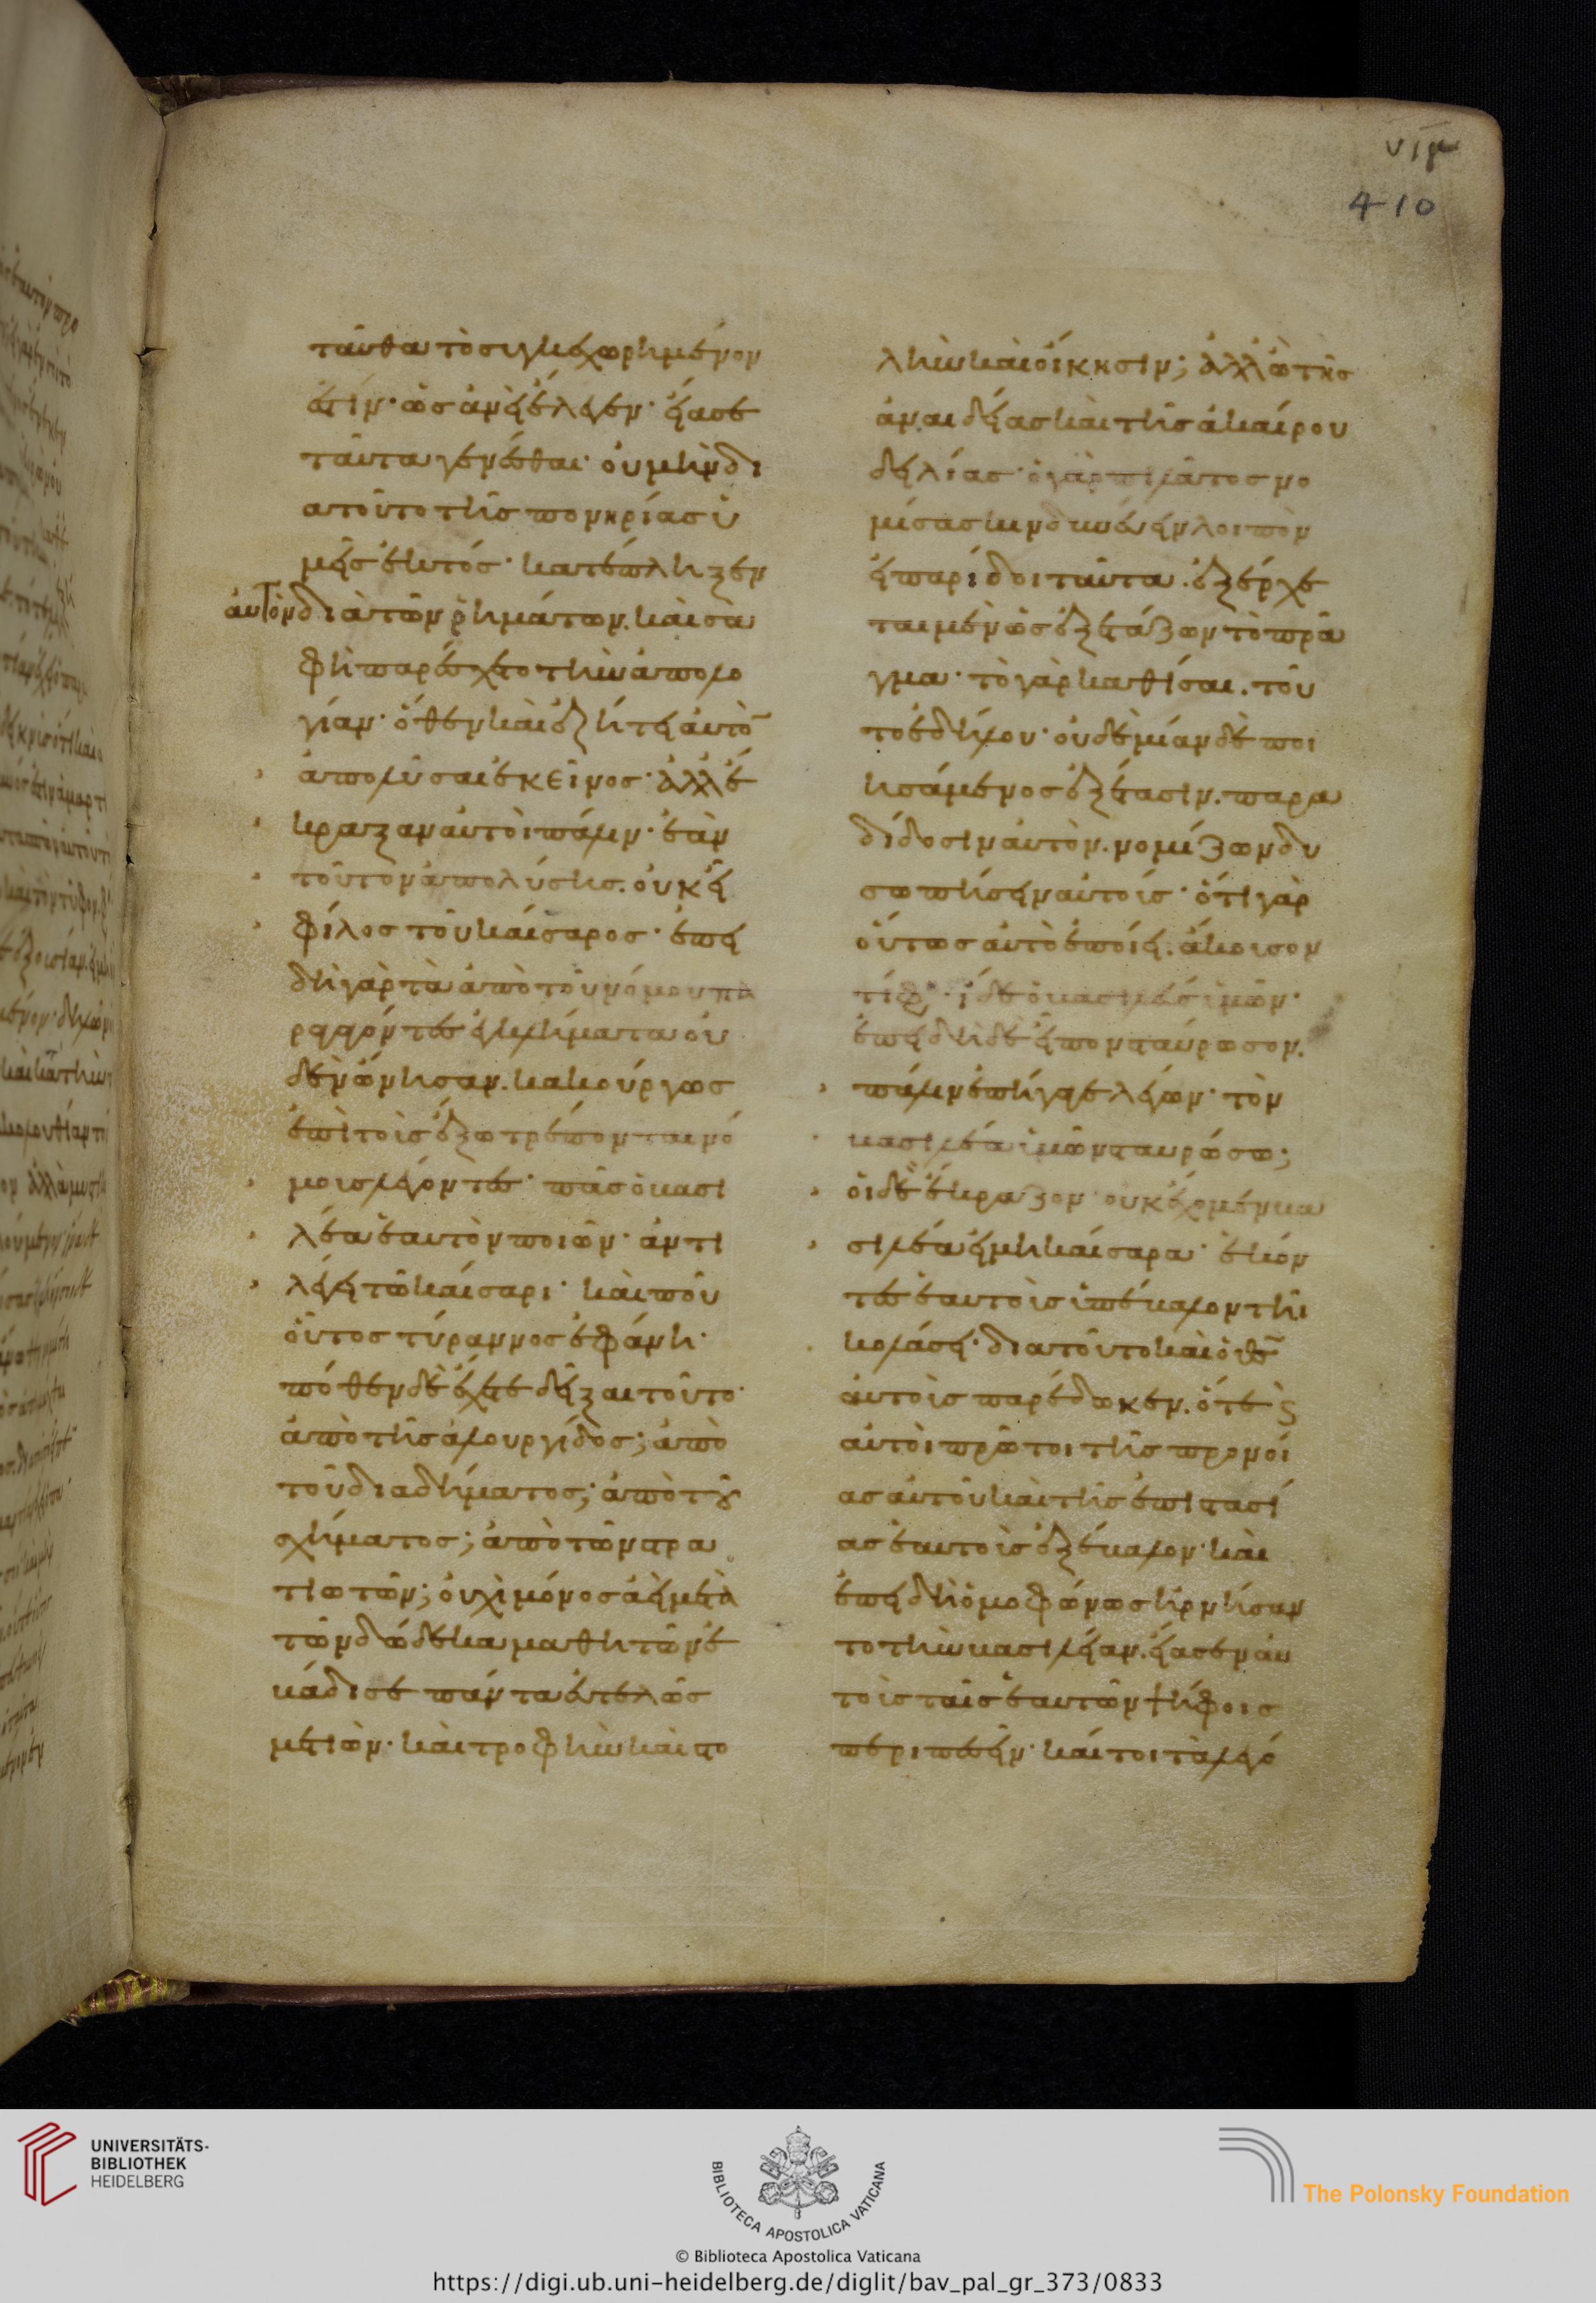 410
ταῦθα τὸ συγκεχωρημένον
ἐστιν· ὡς ἂν εἰ ἔλεγεν· εἴασε
ταῦτα γενέσθαι· οὐ μὴν δι
ατοῦτο τῆς πονηρίας ὑ
μεῖς ἐκτός· κατέπληξεν
αὐτὸν διὰ τῶν ῥημάτων. καὶ σα
φῆ παρέσχετο τὴν ἀπολο
γίαν· ὅθεν καὶ ἐζήτει αὐτὸ̄
ἀπολῦσαι ἐκεῖνος· ἀλλ' ἔ
κραξαν αὐτοὶ πάλιν· ἐὰν
τοῦτον ἀπολύσῃς. οὐκ εἶ
φίλος τοῦ καίσαρος· ἐπει
δὴ γὰρ τὰ ἀπὸ τοῦ νόμου πα
ραγαγόντες ἐγκλήματα οὐ
δὲν ὤνησαν. κακούργως
ἐπὶ τοὺς ἔξω τρέπονται νό
μους λέγοντες· πᾶς ὁ βασι
λέα ἑαυτὸν ποιῶν· ἀντι
λέγει τῷ καίσαρι· καὶ ποῦ
οὗτος τύραννος ἐφάνη·
πόθεν δὲ ἔχετε δεῖξαι τοῦτο·
ἀπὸ τῆς ἁλουργίδος; ἀπὸ
τοῦ διαδήματος; ἀπὸ τοῦ
σχήματος; ἀπὸ τῶν στρα
τιωτῶν; οὐχὶ μόνος ἀεὶ μετὰ
τῶν δώδεκα μαθητῶν ἐ
βάδισε πάντα εὐτελῶς
μετιών· καὶ τροφὴν καὶ στο
λὴν καὶ οἴκησιν; ἀλλ' ὢ τῆς
ἀναιδείας καὶ τῆς ἀκαίρου
δειλίας· ὁ γὰρ πιλᾶτος νο
μίσας κινδυνεύειν λοιπὸν
εἰ παρίδοι ταῦτα. ἐξέρχε
ται μὲν ὡς ἐξετάζων τὸ πρᾶ
γμα· τὸ γὰρ καθίσαι. τοῦ
το ἐδήλου· οὐδὲ μίαν δὲ ποι
ησάμενος ἐξέτασιν. παρα
δίδοσιν αὐτὸν. νομίζων δυ
σωπήσειν αὐτούς· ὅτι γὰρ
οὕτως αὐτὸ ἐποίει. ἄκουσον
τί φησι· ἴδε ὁ βασιλεὺς ὑμῶν·
ἐπειδὴ δὲ εἶπον σταύρωσον.
πάλιν ἐπήγαγε λέγων· τὸν
βασιλέα ὑμῶν σταυρώσω;
οἱ δὲ ἔκραζον· οὐκ ἔχομεν βα
σιλέα εἰ μὴ καίσαρα· ἑκόν
τες ἑαυτοὺς ὑπέβαλον τῇ
κολάσει· διατοῦτο καὶ ὁ θς̄
αὐτοὺς παρέδωκεν. ὅτε ϛ̀
αὐτοὶ πρῶτοι τῆς προνοί
ας αὐτοῦ καὶ τῆς ἐπιστασί
ας ἑαυτοὺς ἐξέβαλον· καὶ
ἐπειδὴ ὁμοφώνως ἠρνήσαν
το τὴν βασιλείαν. εἴασεν αὐ
τοὺς ταῖς ἑαυτῶν ψήφοις
περιπεσεῖν· καίτοι τὰ λεγό
UNIVERSITÄTS-
BIBLIOTHEK
HEIDELBERG
BIBLIOTECA APOSTOLICA VATICANA
The Polonsky Foundation
© Biblioteca Apostolica Vaticana
https://digi.ub.uni-heidelberg.de/diglit/bav_pal_gr_373/0833